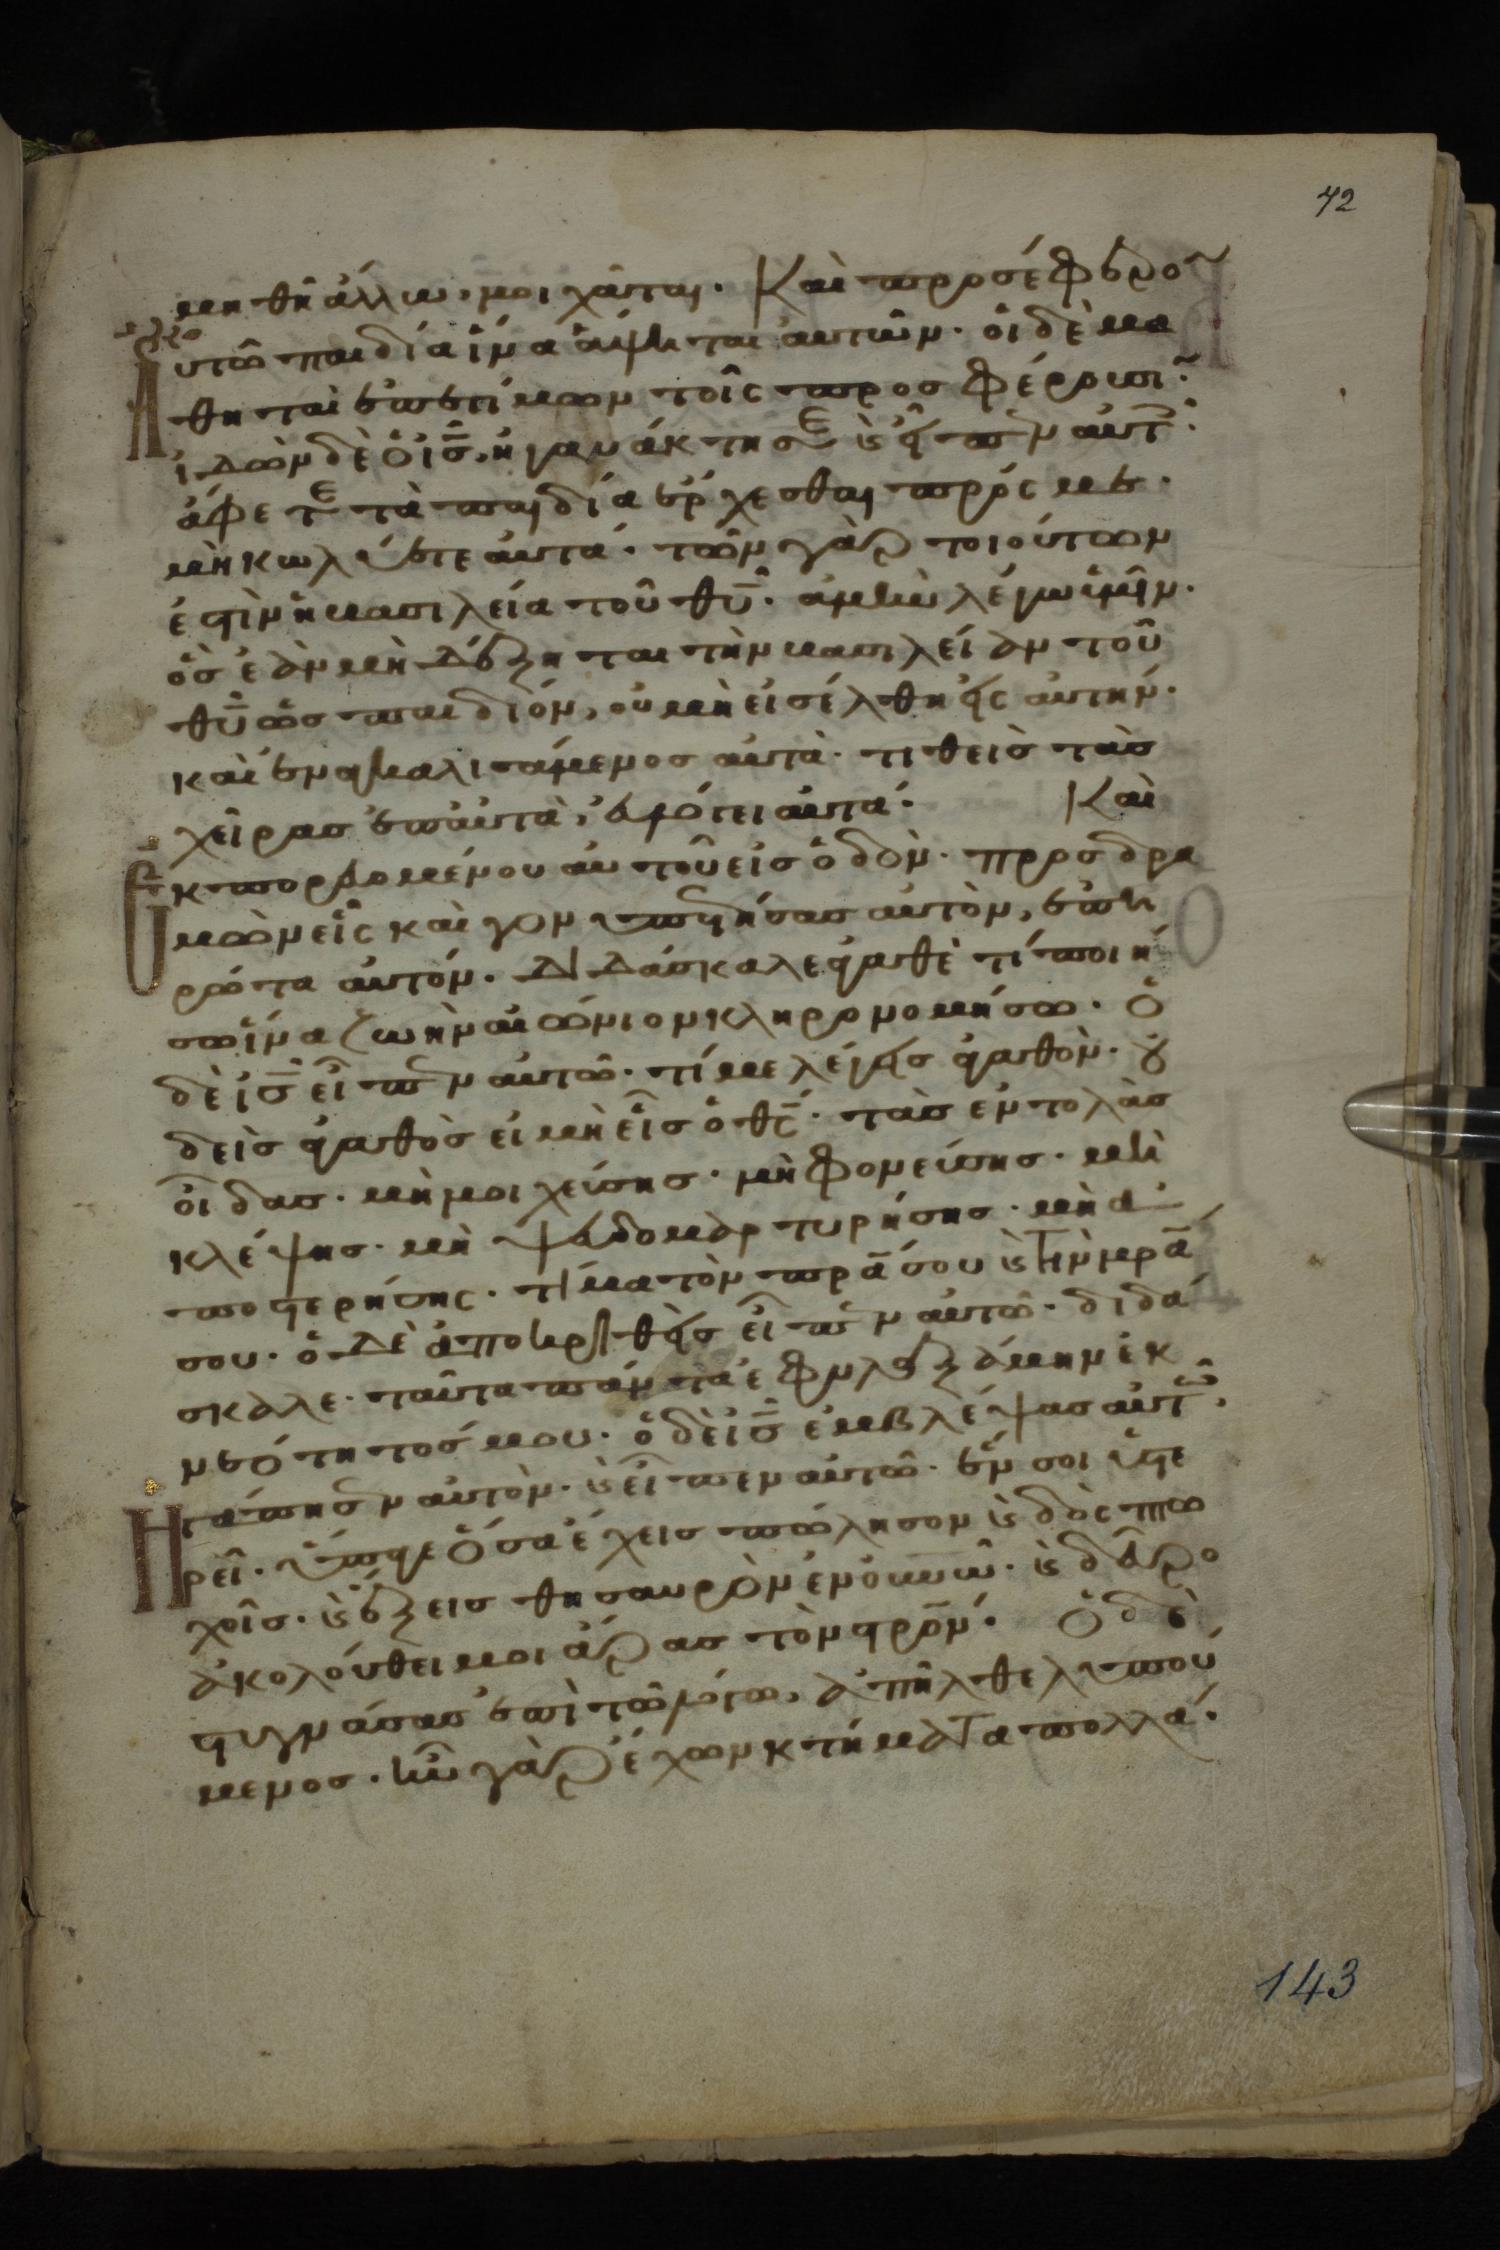 72
μηθῆ ἄλλω, μοιχᾶται. Καὶ προσέφερο
Αυτῶ παιδία ἵνα ἅψηται αυτῶν. οἱ δὲ μα
θηταὶ ἐπετίμων τοῖς προσφέρουσι.
ἰδὼν δὲ ὁ ις, ηγανάκτησε κ ειπεν αυτ.
άφετε τὰ παιδία έρχεσθαι πρός με.
μὴ κωλύετε αυτά. τῶν γὰρ τοιούτων
έστὶν ἡ βασιλεία τοῦ θυ. ἀμὴν λέγω ὑμῖν.
ὃς ἐὰν μὴ δέξηται τὴν βασιλείαν τοῦ
θυ ὡς παιδίον, ου μὴ εισέλθη εἰς αυτην.
καὶ ἐναγκαλισάμενος αυτὰ. τιθεὶς τὰς
χεῖρας ἐπ αυτὰ, ευλόγει αυτά. Καὶ
Εκπορευομένου αυτοῦ εις ὁδὸν. προσδρα
μὼν εἷς καὶ γονυπετήσας αυτὸν, ἐπη
ρώτα αυτόν. Διδάσκαλε αγαθὲ τί ποιή
σω ἵνα ζωὴν αιώνιον κληρονομήσω. ὁ
δὲ ις εῖπεν αυτῶ. τί με λέγεις αγαθὸν. ου
δεὶς αγαθὸς ει μὴ εἷς ὁ θς. τὰς εντολὰς
οῖδας. μὴ μοιχεύσης. μὴ φονεύσης. μὴ
κλέψης. μὴ ψευδομαρτυρήσης. μὴ α
ποστερήσης. τίμα τὸν πρα σου κ τὴν μρα
σου. ὁ δὲ αποκριθεὶς εῖπεν αυτῶ. διδά
σκαλε. ταῦτα πάντα εφυλαξάμην ἐκ
νεότητός μου. ὁ δὲ ις εμβλέψας αυτῶ,
Ηγάπησεν αυτὸν. κ εῖπεν αυτῶ. ἕν σοι ὑστε
ρεῖ. ὕπαγε ὅσα έχεις πώλησον κ δὸς πτω
χοῖς. κ ἕξεις θησαυρὸν ἐν ουνω. κ δεῦρο
ἀκολούθει μοι άρας τὸν στρον. Ὁ δὲ
στυγνάσας ἐπὶ τῶ λόγω, ἀπῆλθε λυπού
μενος. ῆν γὰρ έχων κτήματα πολλά.
143